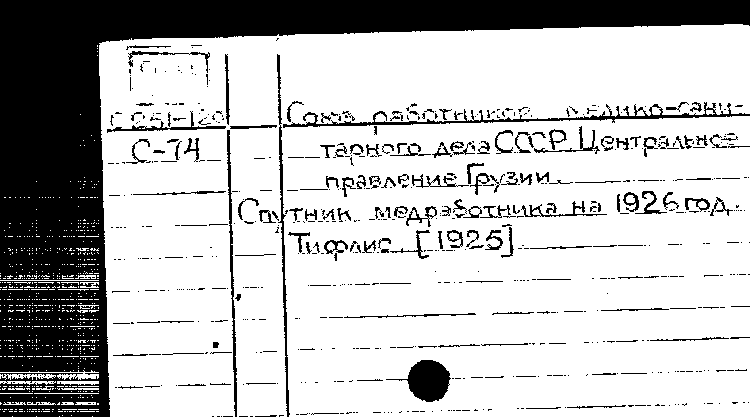 С 251-120
С-74
Союз работников медико-сани-
тарного дела СССР. Центральное
правление Грузии.
Спутник медработника на 1926 год.
Тифлис. [1925]